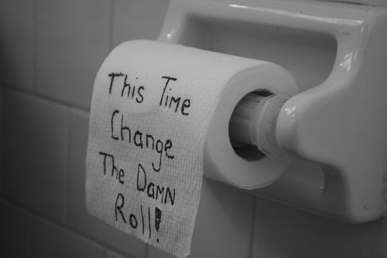 This Time
Change
The Damn
Roll!